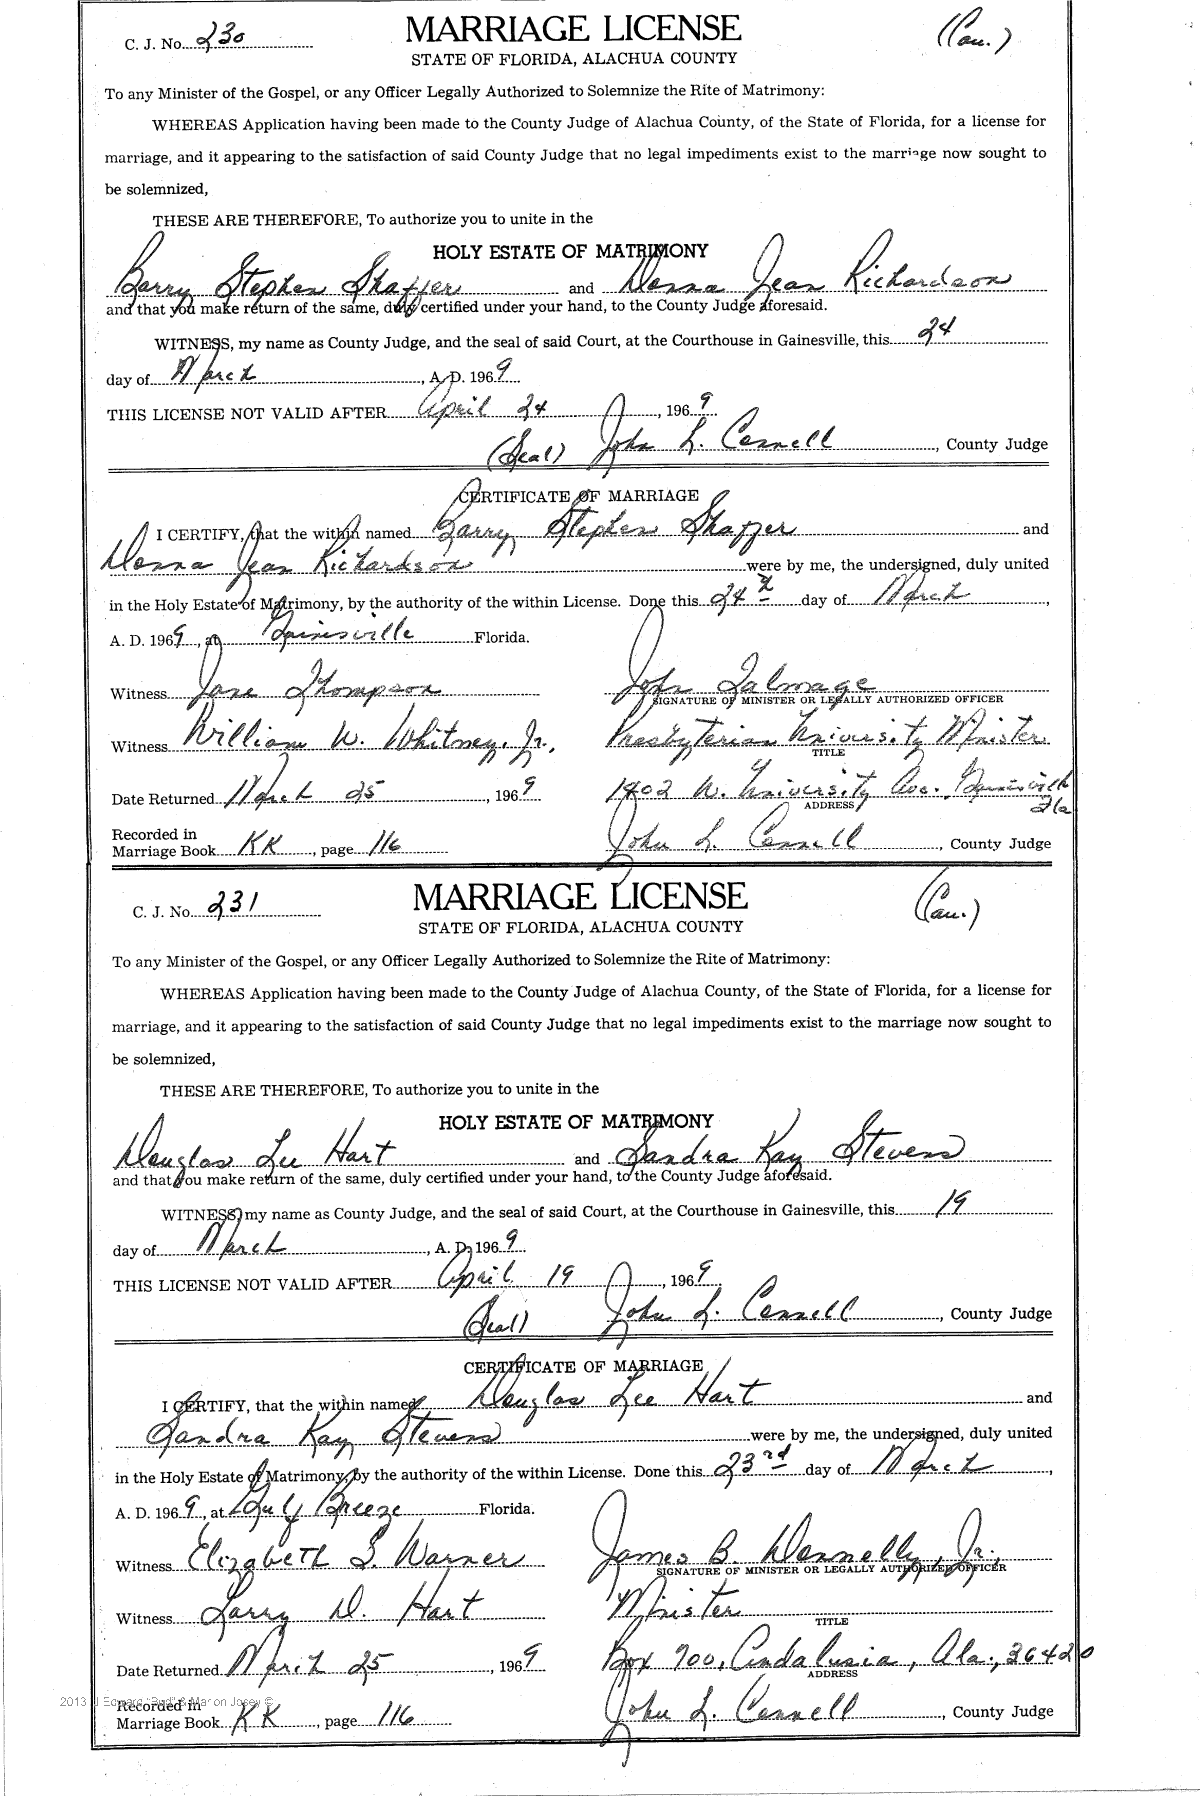 C. J. No. 230 MARRIAGE LICENSE (Cau.)
STATE OF FLORIDA, ALACHUA COUNTY
To any Minister of the Gospel, or any Officer Legally Authorized to Solemnize the Rite of Matrimony:
WHEREAS Application having been made to the County Judge of Alachua County, of the State of Florida, for a license for
marriage, and it appearing to the satisfaction of said County Judge that no legal impediments exist to the marriage now sought to
be solemnized,
THESE ARE THEREFORE, To authorize you to unite in the
HOLY ESTATE OF MATRIMONY
Barry Stephen Shaffer and Donna Jean Richardson
and that you make return of the same, duly certified under your hand, to the County Judge aforesaid.
WITNESS, my name as County Judge, and the seal of said Court, at the Courthouse in Gainesville, this 24
day of March, A. D. 1969
THIS LICENSE NOT VALID AFTER April 24, 1969
(Seal) John L. Connell, County Judge
CERTIFICATE OF MARRIAGE
I CERTIFY, that the within named Barry Stephen Shaffer and
Donna Jean Richardson were by me, the undersigned, duly united
in the Holy Estate of Matrimony, by the authority of the within License. Done this 24th day of March,
A. D. 1969, at Gainesville Florida.
Witness Jane Thompson John Talmage
SIGNATURE OF MINISTER OR LEGALLY AUTHORIZED OFFICER
Witness William W. Whitney, Jr. Presbyterian University Minister
TITLE
Date Returned March 25, 1969 1402 W. University Ave. Gainesville
ADDRESS Fla
Recorded in
Marriage Book KK, page 116 John L. Connell, County Judge
C. J. No. 231 MARRIAGE LICENSE (Cau.)
STATE OF FLORIDA, ALACHUA COUNTY
To any Minister of the Gospel, or any Officer Legally Authorized to Solemnize the Rite of Matrimony:
WHEREAS Application having been made to the County Judge of Alachua County, of the State of Florida, for a license for
marriage, and it appearing to the satisfaction of said County Judge that no legal impediments exist to the marriage now sought to
be solemnized,
THESE ARE THEREFORE, To authorize you to unite in the
HOLY ESTATE OF MATRIMONY
Douglas Lee Hart and Sandra Kay Stevens
and that you make return of the same, duly certified under your hand, to the County Judge aforesaid.
WITNESS, my name as County Judge, and the seal of said Court, at the Courthouse in Gainesville, this 19
day of March, A. D. 1969
THIS LICENSE NOT VALID AFTER April 19, 1969
(Seal) John L. Connell, County Judge
CERTIFICATE OF MARRIAGE
I CERTIFY, that the within named Douglas Lee Hart and
Sandra Kay Stevens were by me, the undersigned, duly united
in the Holy Estate of Matrimony, by the authority of the within License. Done this 23rd day of March,
A. D. 1969, at Gulf Breeze Florida.
Witness Elizabeth S. Warner James B. Donnelly, Jr.
SIGNATURE OF MINISTER OR LEGALLY AUTHORIZED OFFICER
Witness Larry D. Hart Minister
TITLE
Date Returned March 25, 1969 Box 900, Andalusia, Ala., 36420
ADDRESS
2013 J Edward "Bud" & Marion Josey ©
Recorded in
Marriage Book KK, page 116 John L. Connell, County Judge